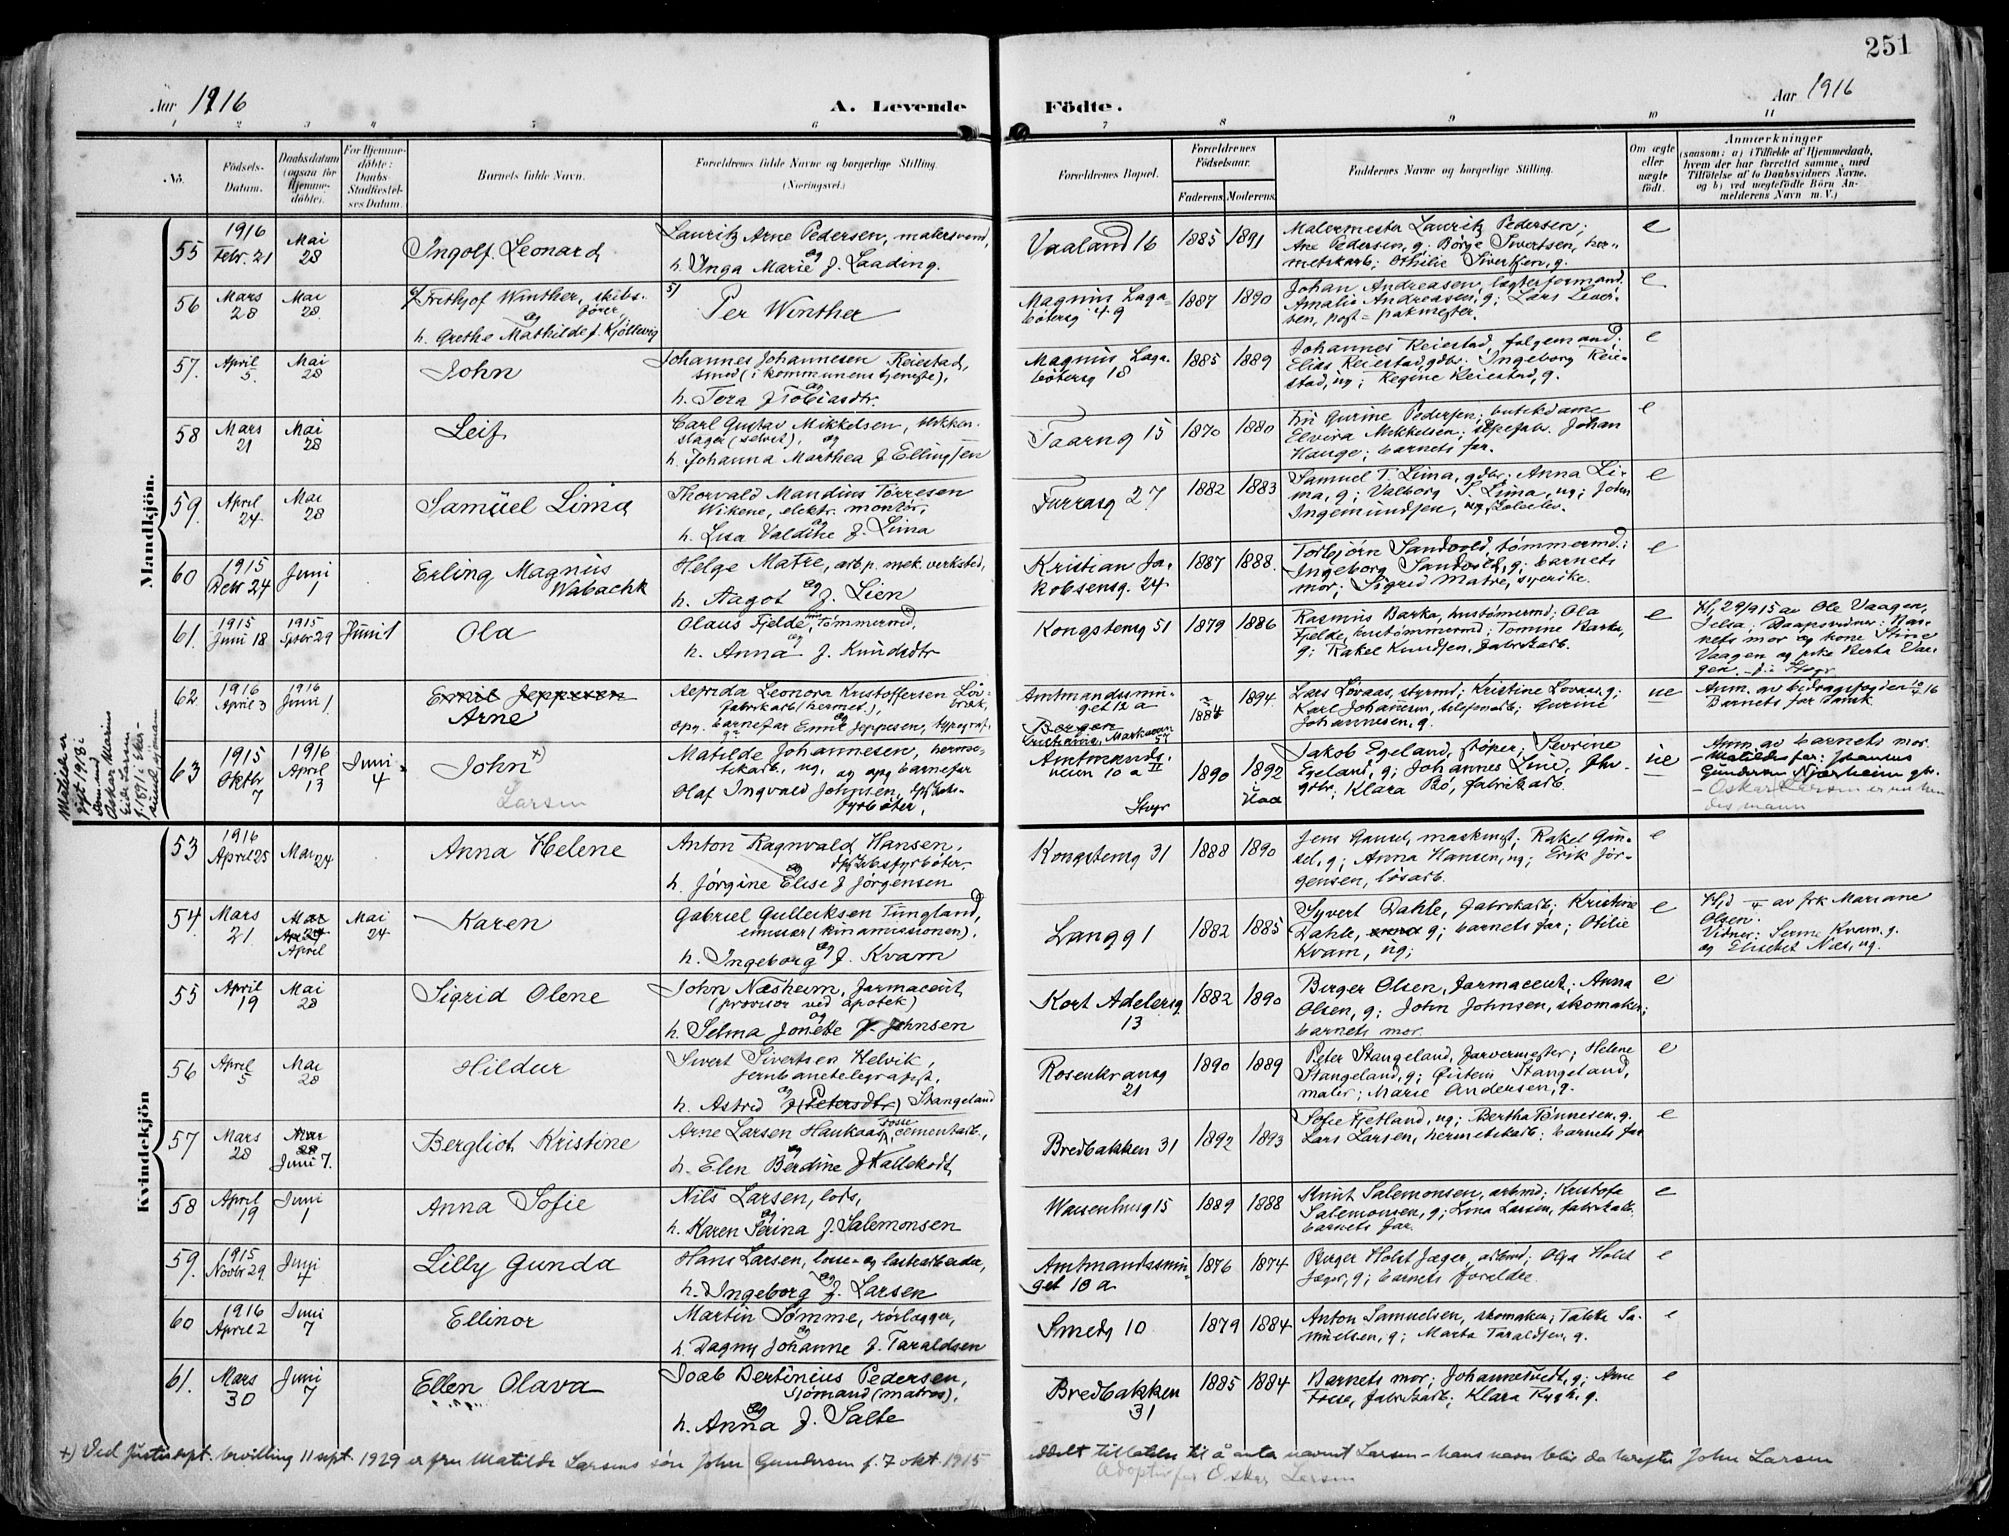 251
Aar 1916
A. Levende
Födte.
Aar 1916
1 2 3 4 5 6 7 8 9 10 11
No.
Födsels-
Datum.
Daabsdatum
(ogsaa for
Hjemme-
döbte).
For Hjemme-
döbte:
Daabs-
Stadfæstel-
ses Datum.
Barnets fulde Navn.
Forældrenes fulde Navne og borgerlige Stilling.
(Næringsvei.)
Forældrenes Bopæl.
Forældrenes
Födselsaar.
Faderens. Moderens.
Faddernes Navne og borgerlige Stilling.
Om ægte
eller
uægte
födt.
Anmærkninger
(saasom: a) i Tilfælde af Hjemmedaab,
hvem der har forrettet samme, med
Tilföielse af to Daabsvidners Navne,
og b) ved uægtefödte Börn An-
melderens Navn m. V.)
Mandkjön.
55
1916
Febr. 21
Mai
28
Ingolf Leonard
Lauritz Arne Pedersen, malersvend,
og
h. Inga Marie f. Laading.
Vaaland 16
1885 1891
Malermester Lauritz Pedersen;
Ane Pedersen, g; Börge Sivertsen, her-
metikarb; Othilie Sivertsen, g.
e
56
Mars
28
Mai
28
Frithjof Winther, skibs-
fører,
og
h. Grethe Mathilde f. Kjöllevig
Per Winther
Magnus Laga-
bötersg 49
1887 1890
Johan Andreasen, lægterformand;
Amalie Andreasen, g; Lars Iver-
sen, post = pakmester.
e
57.
April
5.
Mai
28
John
Johannes Johannesen Reiestad,
smed (i kommunens tjeneste),
og
h. Tora f Tobiasdtr.
Magnus Laga-
bötersg 18
1885 1889
Johannes Reiestad, følgemand;
Elias Reiestad, gdbr; Ingeborg Reie-
stad, ug; Regine Reiestad, g.
e
58
Mars
21
Mai
28
Leif
Carl Gustav Mikkelsen, blikken-
slager (selvst), og
h. Johanna Marthea f Ellingsen
Taarng 15
1870 1880
Fru Gurine Pedersen; butikdame
Elvira Mikkelsen; Johan
Hauge; barnets far.
e
59.
April
24.
Mai
28
Samuel Lima
Thorvald Mandius Torresen
Wikene, elektr. montör,
og
h. Lisa Valdine f. Lima
Furrasg 27
1882 1883
Samuel T. Lima, gdbr; Anna Li-
ma, g; Valborg S. Lima, ug; John
Ingemundsen,
e
60
1915
Debr 24
Juni
1
Erling Magnus
Wabachk
Helge Matre, arb. p. mek. verksted,
og
h. Aagot f. Lien
Kristian Ja-
kobsensg. 24
1887 1888.
Torbjörn Sandvold, tömmermd;
Ingeborg Sandvold, g; barnets
mor; Sigrid Matre, syerske.
e
61.
1915
Juni 18
1915
Septbr 29
Juni 1
Ola
Olaus Fjelde, hustömmermd,
og
h. Anna f. Knudsdtr
Kongstensg 51
1879 1886
Rasmus Barka, hustömermd; Ola
Fjelde, hustömmermd; Tomine Barka,
g; Rakel Knudsen, fabrikarb.
e
Hj, 29/9 15 av Ole Vaagen,
Jelsa. Daapsvidner: Bar-
nets mor og kone Stine
Vaagen og pike Berta Vaa-
gen
62.
1916
April 3
1916
Juni 1.
Emil Jeppesen
Arne
Alfrida Leonora Kristoffersen Löv-
bræk,
fabrikarb (hermet),
og
opg. barnefar Emil Jeppesen, typograf,
Amtmandssvin-
get 12 a
Bergen
Kristiania, Markveien
57
1884 1894
Lars Lövaas, styrmd; Kristine Lovaas, g;
Karl Johannesen, telefonarb; Gurine
Johannesen, g.
ue
Anm. av bidragsfogden 10/4 16
Barnets far dansk
63
1915
Oktbr
7
1916
April
13
Juni
4
John +)
Larsen
Matilde Johannesen, herme-
tikarb, ug, og opg barnefar
Olaf Ingvald Johnsen, dpskibs-
fyrböter,
Amtmands-
svin 10 a II
Stvgr
1890 1892
Jakob Egeland, stöper; Severine
Egeland, g; Johannes Line,
gdbr; Klara Bö, fabrikarb.
ue
Anm. av barnets mor.
- Matildes far: Johannes
Gundersen Njærheim gbr.
- Oskar Larsen er nu hen
des mann
Matilde er
sept. 1918 i
Oskar Marius
Eide Larsen
f. 1891 i Sker-
sund, sjömann
Kvindekjön
53
1916
April 25
Mai 24
Anna Helene
Anton Ragnvald Hansen,
dpskibsfyrböter
og
h. Jörgine Elise f Jörgensen
Kongstensg 31
1888 1890
Jens Gausel, maskinist; Rakel Gau-
sel, g; Anna Hansen, ug; Erik Jör-
gensen, lösarb.
e
54.
Mars
21.
Mai
24
April
Mai
24
Karen
Gabriel Gulleiksen Tungland,
emissær (kinamissionen),
og
h. Ingeborg f. Kvam
Langg 1
1882 1885
Syvert Dahle, fabrikarb; Kristine
Dahle, g; barnets far; Otilie
Kvam, ug;
e
av frk Mariane
Olsen.
Vidner: Serine Kvam, g.
og Elisabet Næs, ug.
55
April
19
Mai
28
Sigrid Olene
John Næsheim, farmaceut,
(provisor ved apotek)
og
h. Selma Jonette f. Johnsen
Kort Adelersg
13
1882 1890
Birger Olsen, farmaceut; Anna
Olsen, g; John Johnsen, skomaker;
barnets mor.
e
56
April
5
Mai
28
Hildur
Sivert Sivertsen Helvik,
jernbanetelegrafist,
og
h. Astrid f (Petersdtr) Stangeland
Rosenkransg
21
1890 1889
Peter Stangeland, farvermester; Helene
Stangeland, g; Öistein Stangeland,
maler; Marie Andersen, g.
e
57
Mars
28
Mai
28
Juni 7.
Bergliot Kristine
Arne Larsen Haukaas, Fosse, cementarb.,
og
h. Elen Berdine f Kallekodt
Bredbakken 31
1892 1893
Sofie Fjetland, ug; Bertha Tönnesen, g.
Lars Larsen, hermetikarb; barnets far
e
58
April
19
Juni
1
Anna Sofie
Nils Larsen, lods,
og
h. Karen Serina f. Salemonsen
Waisenhusg 15
1889 1888
Knut Salemonsen, arbmd; Kristofa
Salemonsen, g; Lina Larsen, fabrikarb.
barnets far.
e
59.
1915
Novbr 29
Juni
4
Lilly Gunda
Hans Larsen, losse- og lastearbeider,
og
h. Ingeborg f. Larsen
Amtmandssvin-
get 10 a
1876 1874
Birger Holst Jæger, arbmd; Olga Holst
Jæger, g; barnets forældre.
e
60
1916
April 2
Juni
7
Ellinor
Martin Sömme, rörlægger,
og
h. Dagny Johanne f. Taraldsen
Smedg 10
1879 1884
Anton Samuelsen, skomaker; Tabita Sa-
muelsen, g; Marta Taraldsen, g.
e
61.
Mars
30
Juni
7
Ellen Olava
Joab Bertinius Pedersen,
sjömand (matros),
og
h. Anna f. Salte
Bredbakken
31
1885 1884
Barnets mor; Johanne Tvedt, g; Arne
Fosse, fabrikarb; Klara Rygh, g.
e
+) Ved Justisdept. bevilling 11 sept. 1929 er fru Matilde Larsens sön John Gundersen f. 7 okt. 1915 meddelt tillatelse til å anta navnet Larsen - hans navn blir da herefter John Larsen
Adoptivfar Oskar Larsen